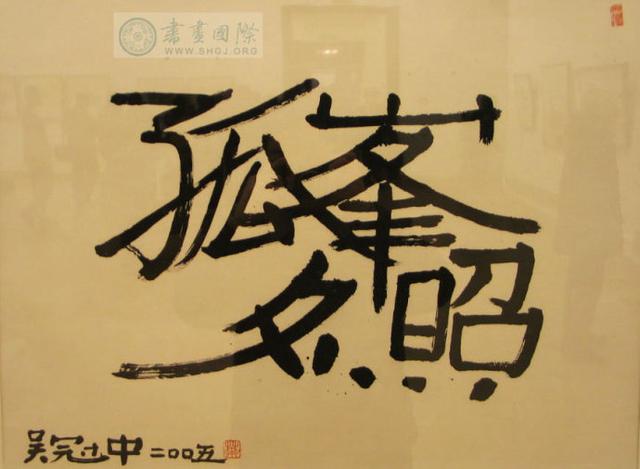 書畫國際
WWW.SHGJ.ORG
孤峯
夕照
吴冠中 二〇〇五